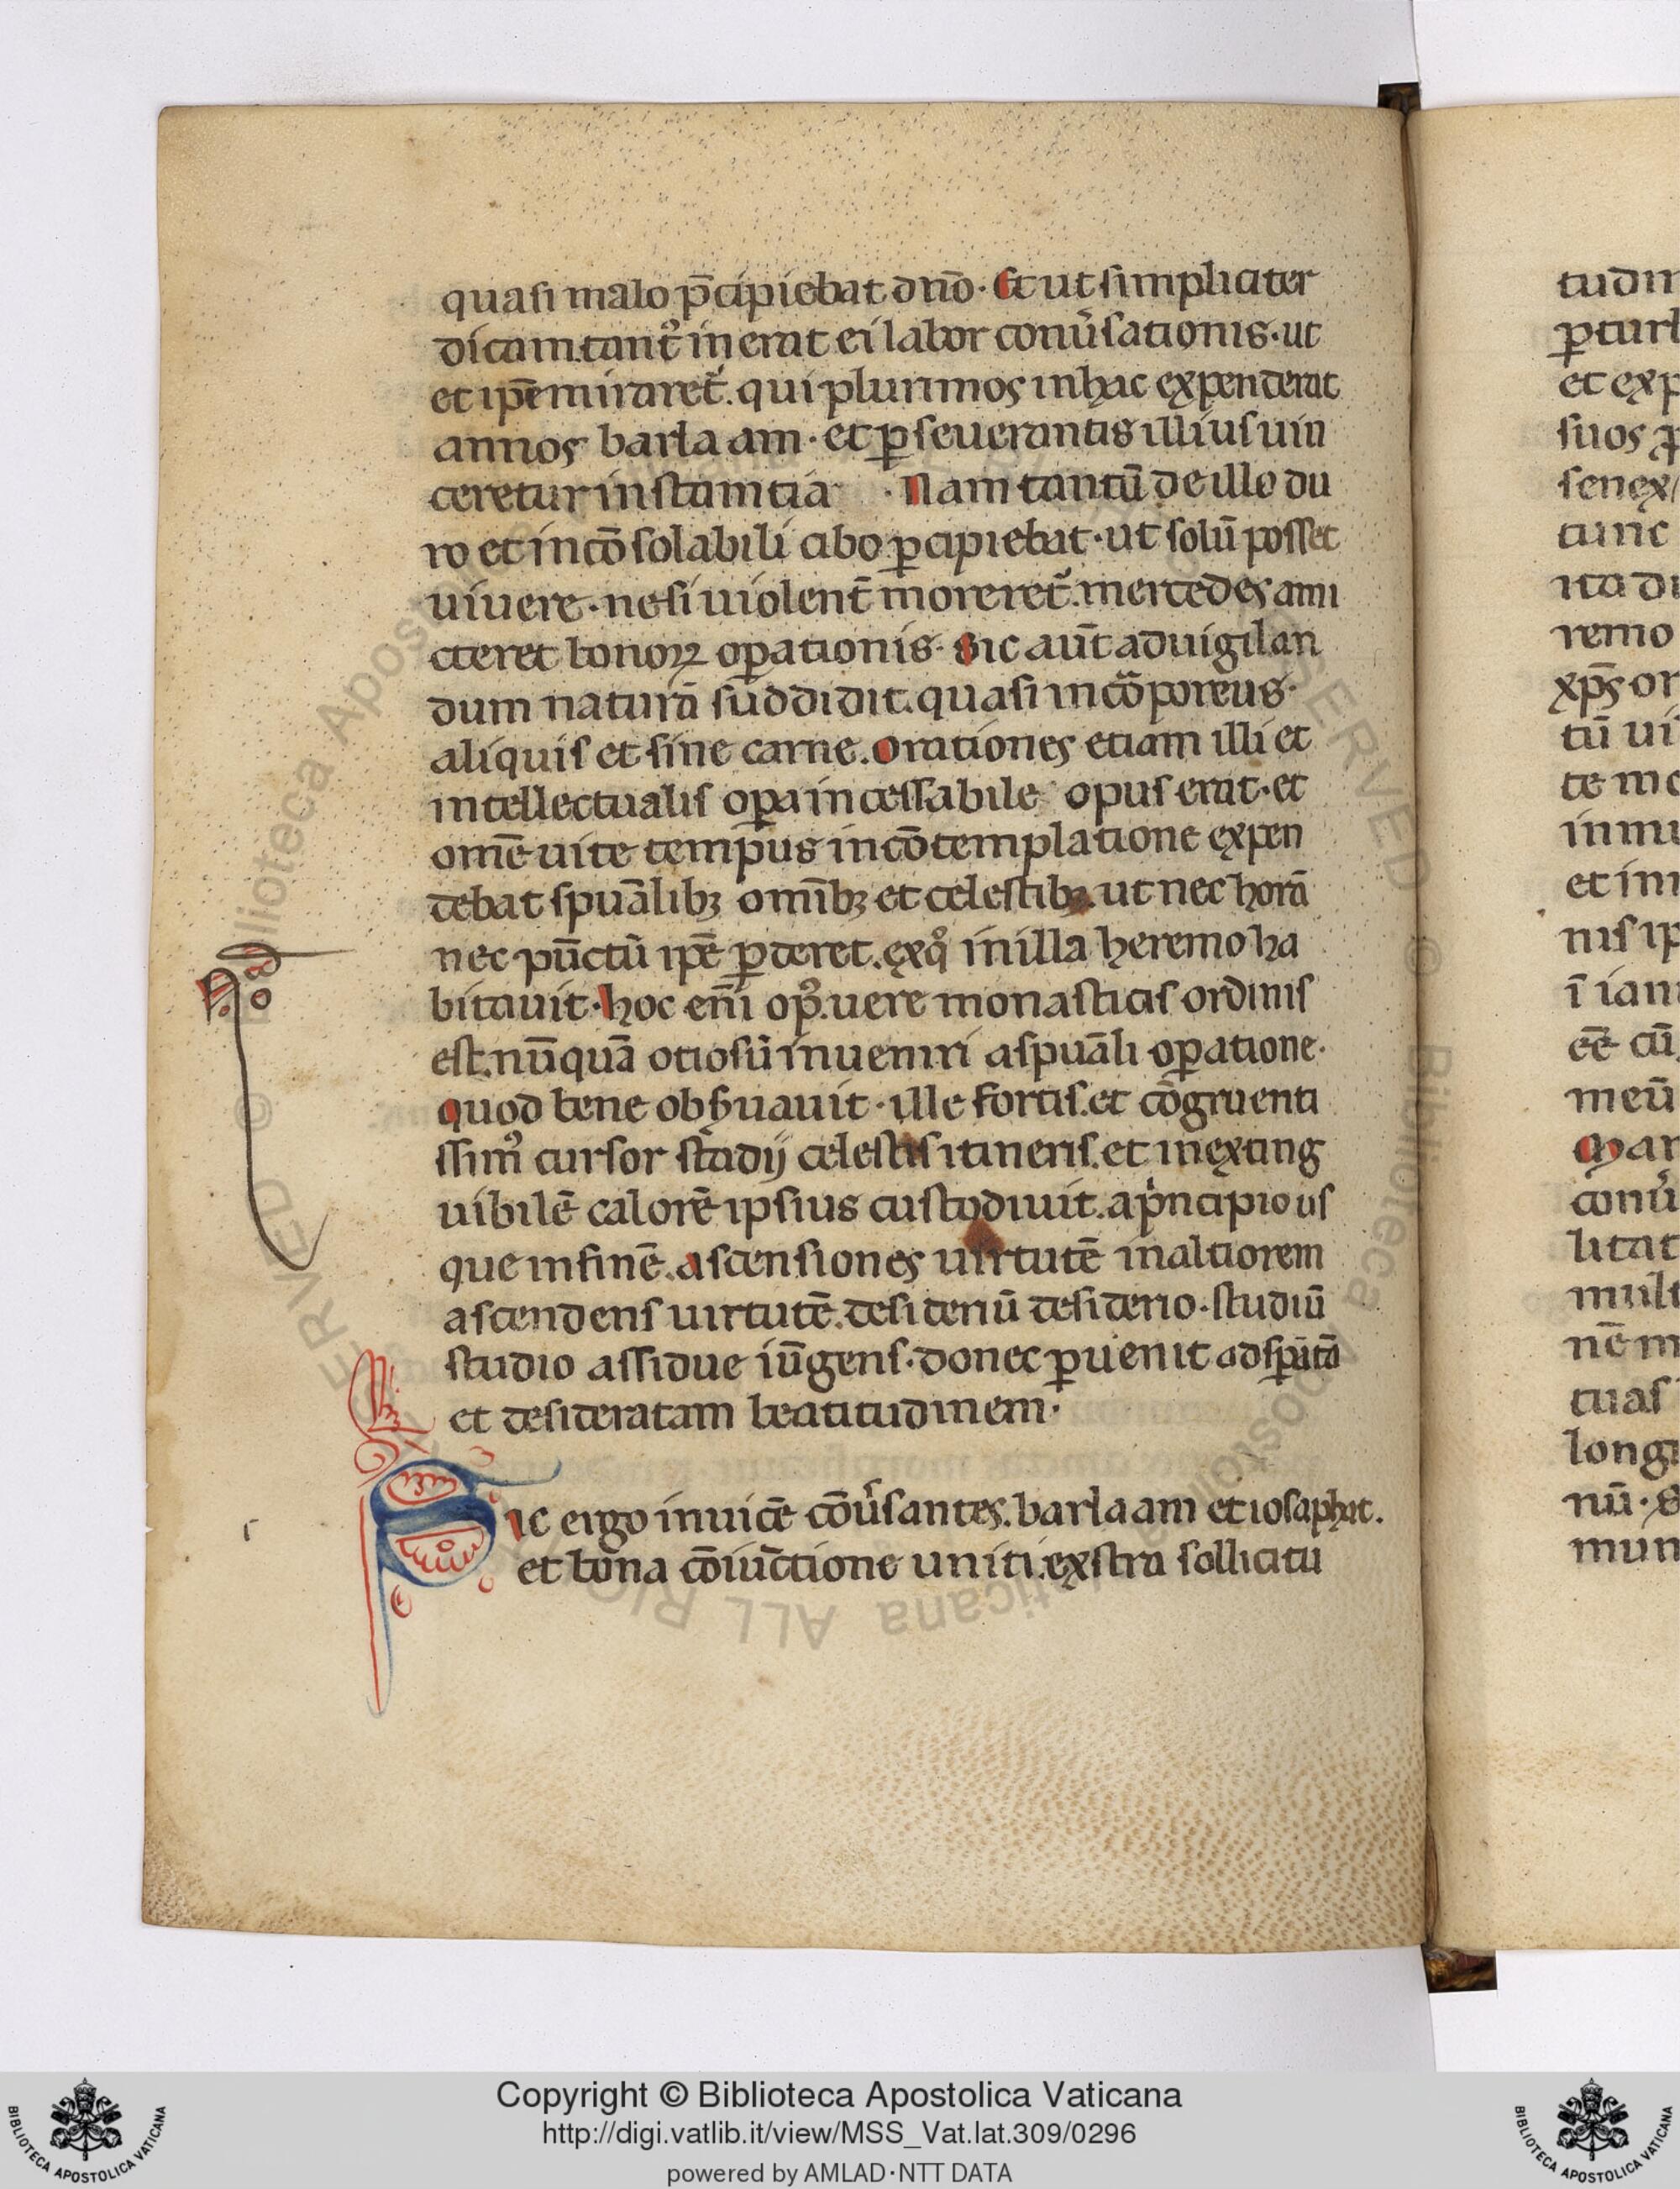 quasi malo p̄cipiebat dn̄o. Et ut simpliciter
dicam. tant᷒ inerat ei labor conu̾sationis. ut
et ip̄e miraret᷑. qui plurimos in hac expenderat
annos barlaam. et ꝑseuerantis illius uin
ceretur instamtia. Nam tantū de illo du
ro et incōsolabili cibo ꝑcipiebat. ut solū posset
uiuere. ne si uiolent̄ moreret᷑. mercedes ami
cteret bonoꝝ oꝑationis. Sic aūt aduigilan
dum naturā subdidit. quasi incōporeus.
aliquis et sine carne. Orationes etiam illi et
intellectualis oꝑa incessabile opus erat. et
omē uite tempus in cōtemplatione expen
debat spūalibꝫ omībꝫ et celestibꝫ. ut nec horā
nec pūctū ip̄e ꝑderet. ex qͦ in illa heremo ha
bitauit. Hoc enī op᷒. uere monasticis ordinis
est. nūquā otiosū inueniri a spūali oꝑatione.
Quod bene obẜuauit. ille fortis. et cōgruenti
ssim᷒ cursor stadij celestis itineris. et inexting
uibilē calorē ipsius custodiuit. a pͥncipio us
que in finē. Ascensiones uirtutē in altiorem
ascendens uirtutē. desideriū desiderio. studiū
studio assidue iūgens. donec ꝑuenit ad sp̄atā
et desideratam beatitudinem.
Sic ergo inuicē cōu̾santes. barlaam et iosaphat.
et bona cōiūctione uniti. exstra sollicitu
No
tudin
ꝑturb
et exp
suos
senex
tunc
ita di
remo
xp̄s or
tū ui
te me
in mu
et im
nis ip
ī iam
eē cū
meū
Mar
conu̾
litat
mult
nē m
tuas
longi
nū. S
mun
Copyright © Biblioteca Apostolica Vaticana
http://digi.vatlib.it/view/MSS_Vat.lat.309/0296
powered by AMLAD·NTT DATA
BIBLIOTECA APOSTOLICA VATICANA
BIBLIOTECA APOSTOLICA VATICANA